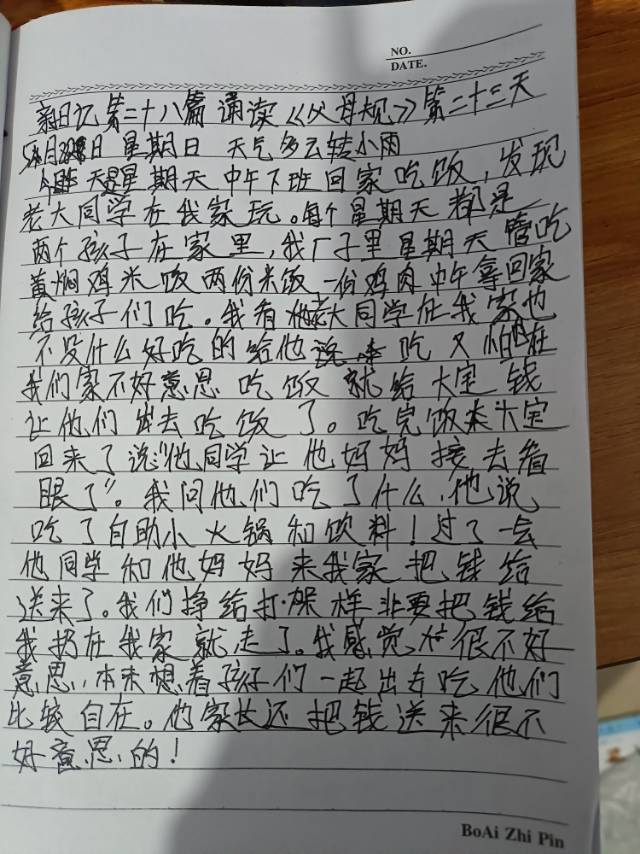 NO.
DATE.
亲日记第二十八篇 诵读《父母规》第二十三天
5月28日 星期日 天气多云转小雨
今天是星期天中午下班回家吃饭，发现
老大同学在我家玩。每个星期天都是
两个孩子在家里，我厂子里星期天管吃
黄焖鸡米饭两份米饭一份鸡肉中午拿回家
给孩子们吃。我看他老大同学在我家也
不没什么好吃的给他 吃又怕在
我们家不好意思吃饭就给大宝钱
让他们出去吃饭了。吃完饭大宝
回来了说："他同学让他妈妈接去看
眼了"。我问他们吃了什么，他说
吃了自助小火锅和饮料！过了一会
他同学和他妈妈来我家把钱给
送来了。我们挣给打架样非要把钱给
我扔在我家就走了。我感觉很不好
意思，本来想着孩子们一起出去吃他们
比较自在。他家长还把钱送来很不
好意思的！
BoAi Zhi Pin